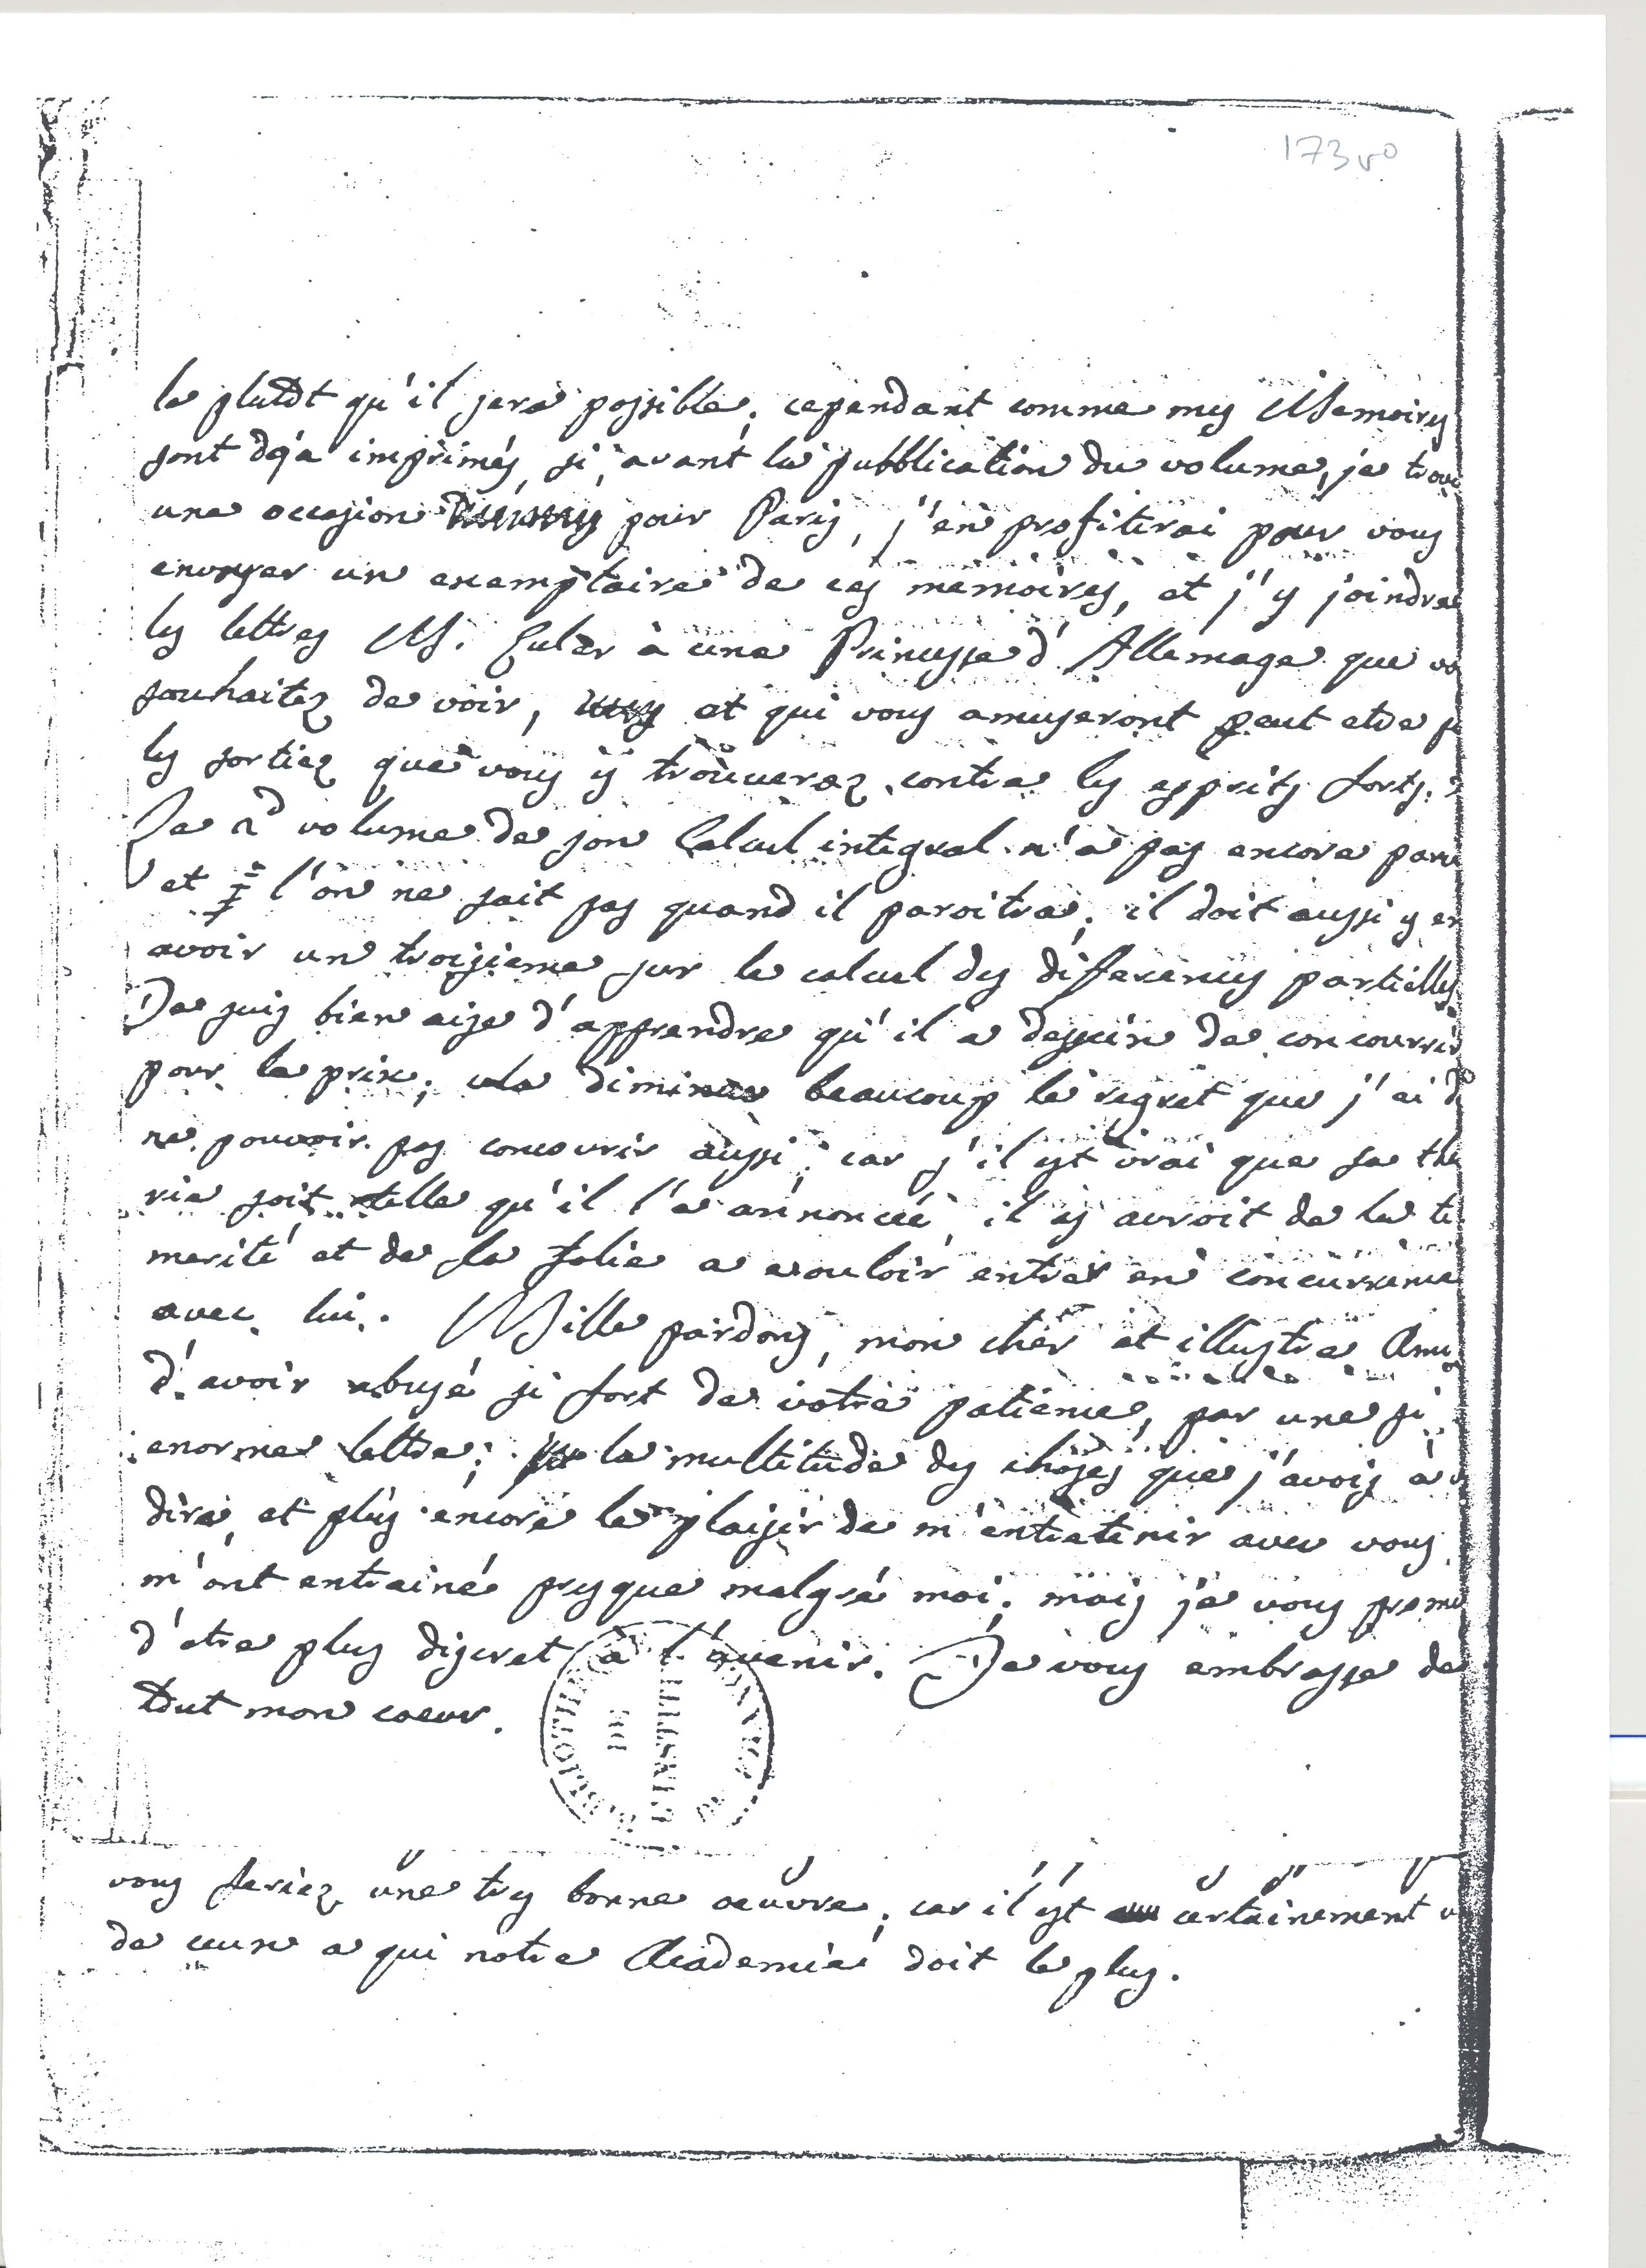 173 vo
le plutôt qu'il sera possible; cependant comme mes Memoires
sont deja imprimés, si, avant la pubblication du volume, je trou
une occasion pour Paris, j'en profiterai pour vous
envoyer un exemplaire de ces memoires, et j'y joindrai
les lettres M. Euler à une Princesse d'Allemage que vo
souhaitez de voir, et qui vous amuseront peut etre p
les sorties que vous y trouverez contre les esprits forts.
Le 2d volume de son Calcul integral n'a pas encore paru
et l'on ne sait pas quand il paroitra; il doit aussi y en
avoir un troisieme sur le calcul des differences partielles
Je suis bien aise d'apprendre qu'il a dessein de concourrir
pour le prix; cela diminue beaucoup le regret que j'ai d
ne pouvoir pas concourir aussi; car s'il est vrai que sa theo
rie soit telle qu'il l'a annoncée, il y auroit de la te
merité et de la folie a vouloir entrer en concurrence
avec lui. Mille pardons, mon cher et illustre Ami
d'avoir abusé si fort de votre patience, par une si
enorme lettre; la multitude des choses que j'avois à v
dire, et plus encore le plaisir de m'entretenir avec vous
m'ont entrainé presque malgré moi; mais je vous prome
d'etre plus discret à l'avenir. Je vous embrasse de
tout mon coeur.
BIBLIOTHEQUE DE L'INSTITUT
vous feriez une tres bonne oeuvre; car il est certainement u
de ceux a qui notre Academie doit le plus.